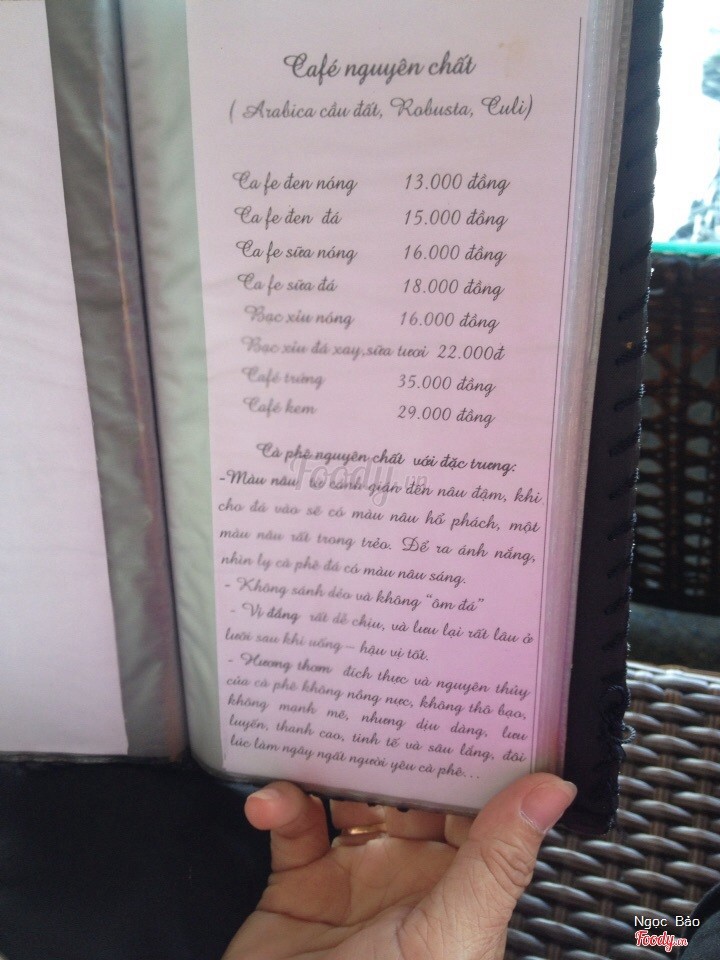 Café nguyên chất
( Arabica cầu đất, Robusta, Culi)
Ca fe đen nóng 13.000 đồng
Ca fe đen đá 15.000 đồng
Ca fe sữa nóng 16.000 đồng
Ca fe sữa đá 18.000 đồng
Bạc xỉu nóng 16.000 đồng
Bạc xỉu đá xay,sữa tươi 22.000đ
Café trứng 35.000 đồng
Café kem 29.000 đồng
Cà phê nguyên chất với đặc trưng:
-Màu nâu từ cánh gián đến nâu đậm, khi
cho đá vào sẽ có màu nâu hổ phách, một
màu nâu rất trong trẻo. Để ra ánh nắng,
nhìn ly cà phê đá có màu nâu sáng.
- Không sánh dẻo và không "ôm đá"
- Vị đắng rất dễ chịu, và lưu lại rất lâu ở
lưỡi sau khi uống – hậu vị tốt.
- Hương thơm đích thực và nguyên thủy
của cà phê không nồng nực, không thô bạo,
không mạnh mẽ, nhưng dịu dàng, lưu
luyến, thanh cao, tinh tế và sâu lắng, đôi
lúc làm ngây ngất người yêu cà phê...
Foody.vn
Ngọc Bảo
Foody.vn